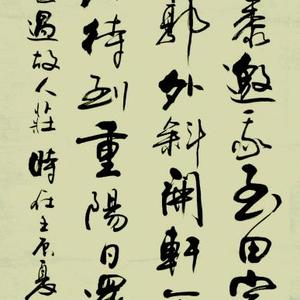 黍邀我至田家
郭外斜開軒
待到重陽日還
過故人莊 時在夏